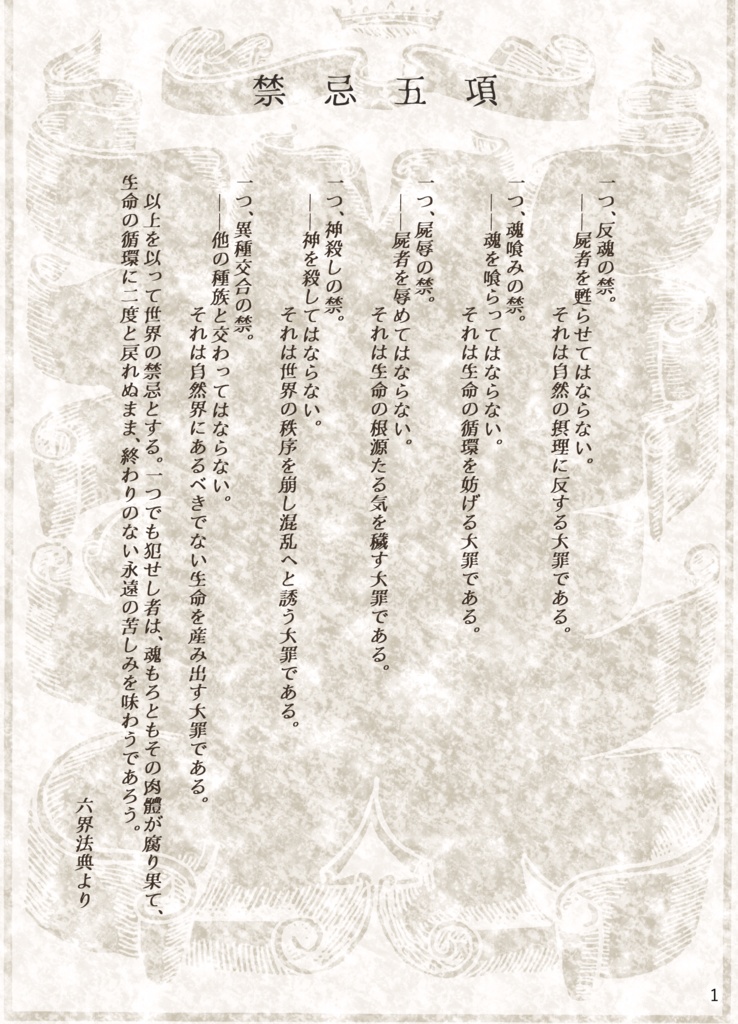 禁忌五項
一つ、反魂の禁。
――屍者を甦らせてはならない。
それは自然の摂理に反する大罪である。
一つ、魂喰みの禁。
――魂を喰らってはならない。
それは生命の循環を妨げる大罪である。
一つ、屍辱の禁。
――屍者を辱めてはならない。
それは生命の根源たる気を穢す大罪である。
一つ、神殺しの禁。
――神を殺してはならない。
それは世界の秩序を崩し混乱へと誘う大罪である。
一つ、異種交合の禁。
――他の種族と交わってはならない。
それは自然界にあるべきでない生命を産み出す大罪である。
以上を以って世界の禁忌とする。一つでも犯せし者は、魂もろともその肉體が腐り果て、
生命の循環に二度と戻れぬまま、終わりのない永遠の苦しみを味わうであろう。
六界法典より
1